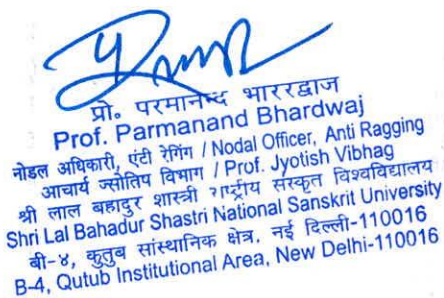 प्रो. परमानन्द भाररद्वाज
Prof. Parmanand Bhardwaj
नोडल अधिकारी, एंटी रेगिंग / Nodal Officer, Anti Ragging
आचार्य ज्योतिष विभाग / Prof. Jyotish Vibhag
श्री लाल बहादुर शास्त्री राष्ट्रीय संस्कृत विश्वविद्यालय
Shri Lal Bahadur Shastri National Sanskrit University
बी-४, कुतुब सांस्थानिक क्षेत्र, नई दिल्ली-110016
B-4, Qutub Institutional Area, New Delhi-110016